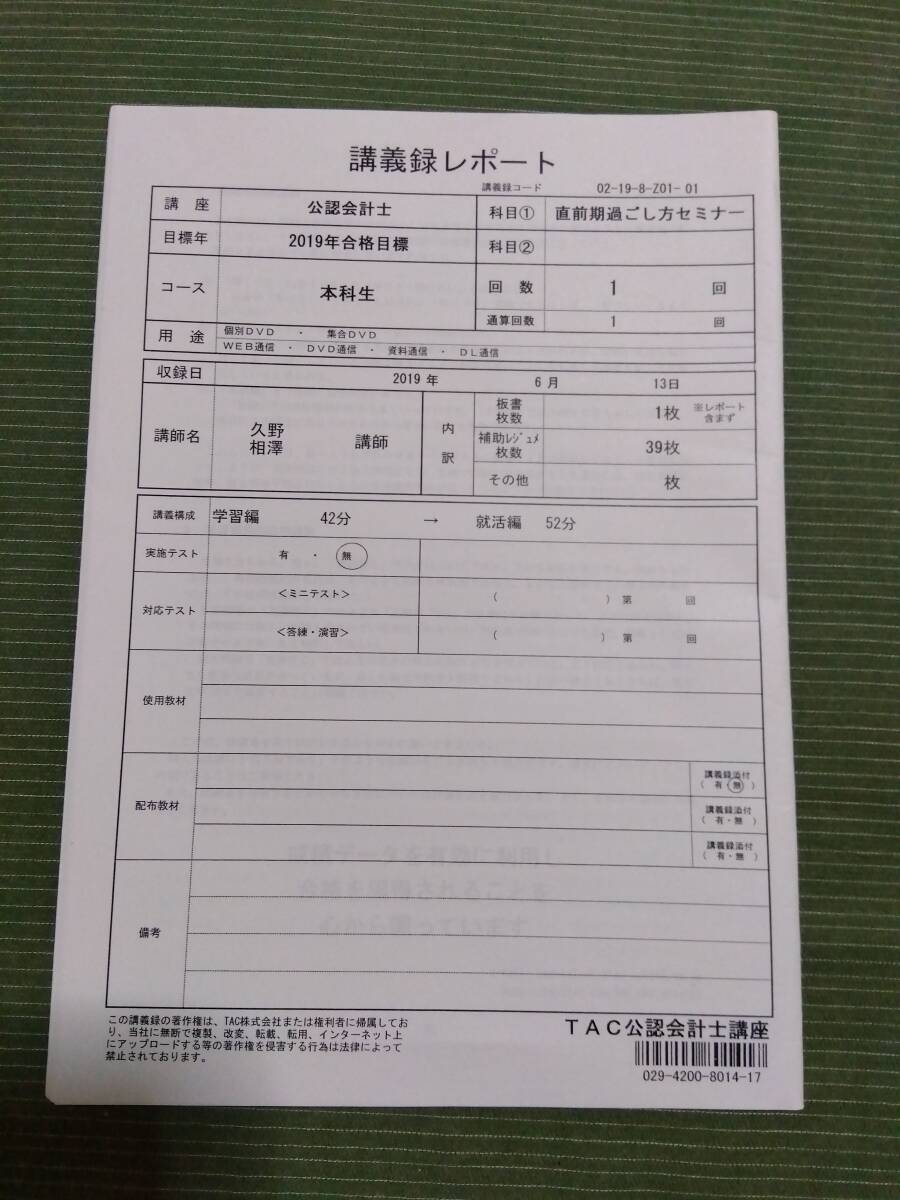 講義録レポート
講義録コード 02-19-8-Z01-01
講座 公認会計士 科目① 直前期過ごし方セミナー
目標年 2019年合格目標 科目②
コース 本科生 回数 1 回
通算回数 1 回
用途 個別DVD ・ 集合DVD
WEB通信 ・ DVD通信 ・ 資料通信 ・ DL通信
収録日 2019 年 6 月 13日
講師名 久野 相澤 講師 内訳 板書枚数 1枚 ※レポート含まず
補助ﾚｼﾞｭﾒ枚数 39枚
その他 枚
講義構成 学習編 42分 → 就活編 52分
実施テスト 有 ・ 無
対応テスト <ミニテスト> ( ) 第 回
<答練・演習> ( ) 第 回
使用教材
配布教材 講義録添付 ( 有・無 )
講義録添付 ( 有・無 )
講義録添付 ( 有・無 )
備考
この講義録の著作権は、TAC株式会社または権利者に帰属してお
り、当社に無断で複製、改変、転載、転用、インターネット上
にアップロードする等の著作権を侵害する行為は法律によって
禁止されております。
TAC公認会計士講座
029-4200-8014-17